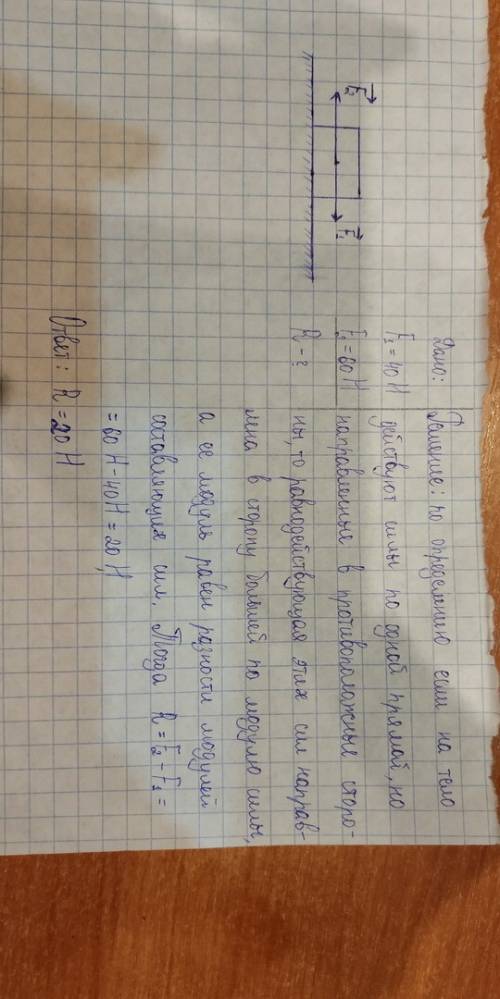 F₂ F₁
Дано: Решение: по определению если на тело
F₁ = 40 Н действуют силы по одной прямой, но
F₂ = 60 Н направленные в противоположные сторо-
R - ? ны, то равнодействующая этих сил направ-
лена в сторону большей по модулю силы,
а ее модуль равен разности модулей
составляющих сил. Тогда R = F₂ - F₁ =
= 60 Н - 40 Н = 20 Н
Ответ: R = 20 Н